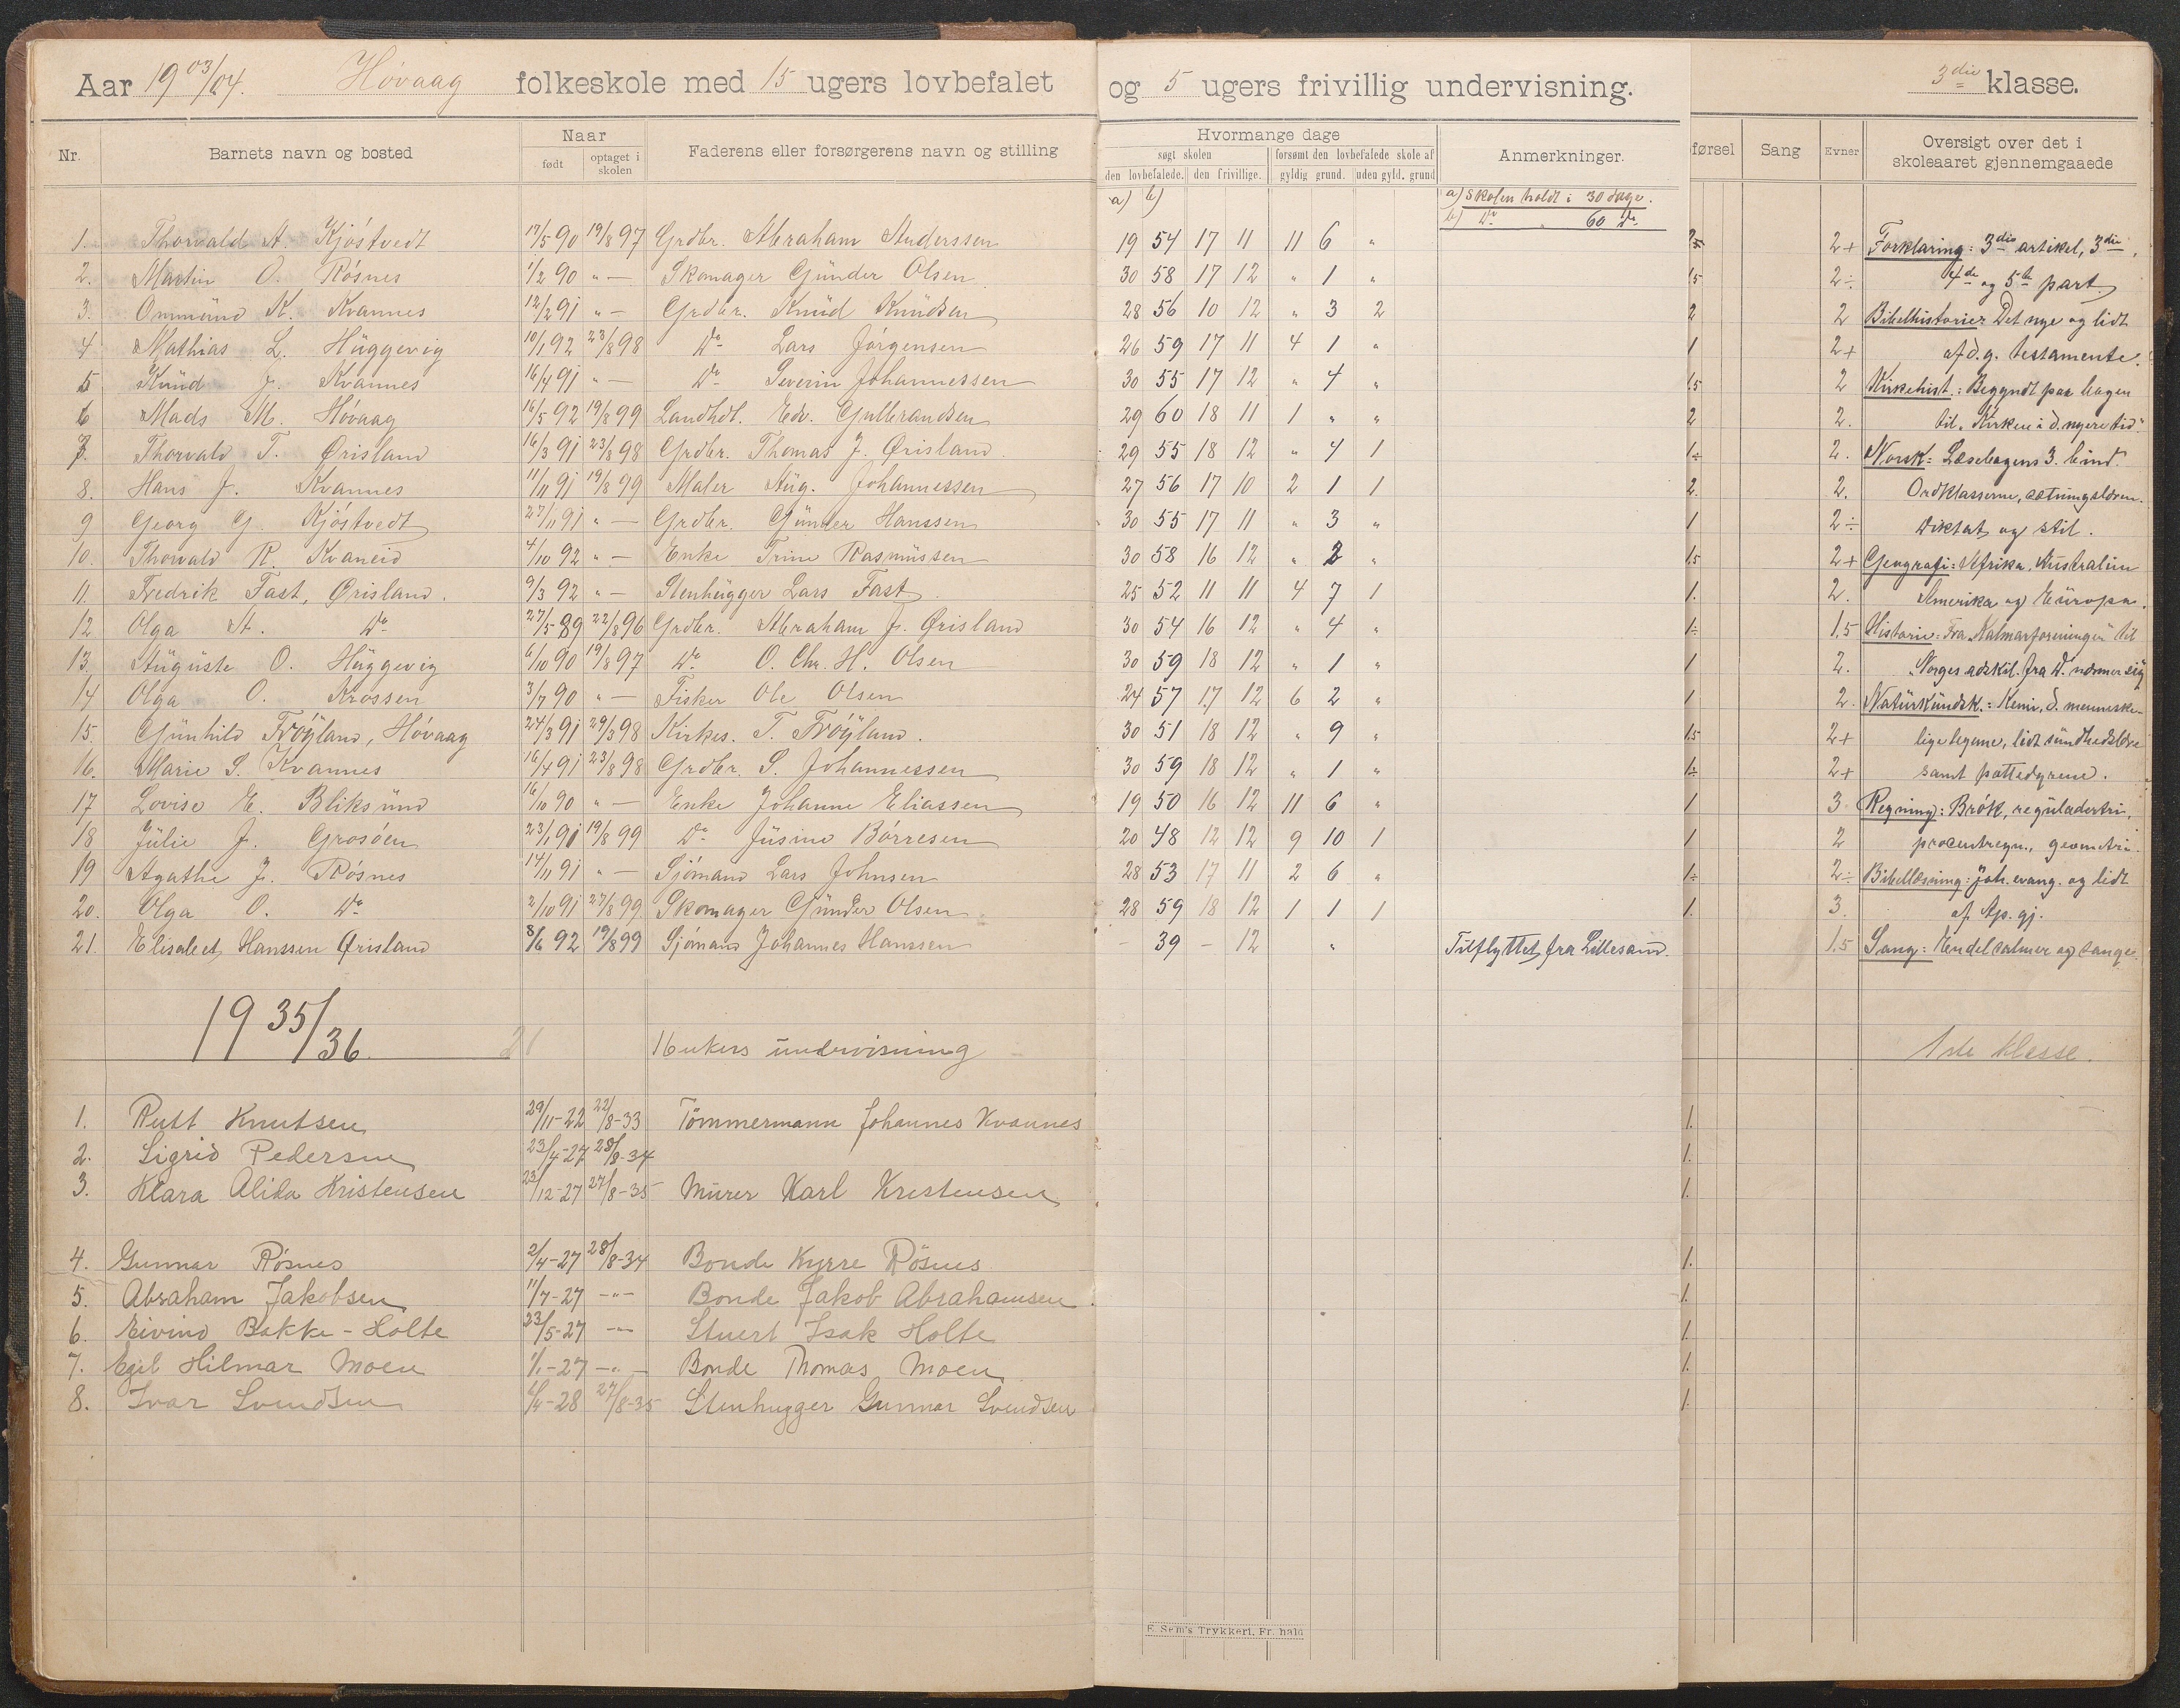 Aar 1903/04. Høvaag folkeskole med 15 ugers lovbefalet og 5 ugers frivillig undervisning. 3die klasse.
Nr. Barnets navn og bosted Naar født optaget i skolen Faderens eller forsørgerens navn og stilling Hvormange dage søgt skolen den lovbefalede. den frivillige. forsømt den lovbefalede skole af gyldig grund. uden gyld. grund Anmerkninger. førsel Sang Evner Oversigt over det i skoleaaret gjennemgaaede
a) b) a) Skolen holdt i 30 dage.
b) Do " 60 Do
1. Thorvald A. Kjøstvedt 17/5 90 19/8 97 Grdbr. Abraham Anderssen 19 54 17 11 11 6 " 2+ Forklaring: 3die artikel, 3die,
2. Martin O. Røsnes 1/2 90 " — Skomager Günder Olsen 30 58 17 12 " 1 " 1.5 2÷ 4de og 5te part.
3. Ommünd K. Kvannes 12/2 91 " — Grdbr. Knüd Knüdsen 28 56 10 12 " 3 2 2 2 Bibelhistorie: Det nye og lidt
4 Mathias L. Hüggevig 10/1 92 23/8 98 Do Lars Jørgensen 26 59 17 11 4 1 " 1 2+ af d. g. testamente.
5 Knüd J. Kvannes 16/4 91 " — Do Severin Johannessen 30 55 17 12 " 4 " 1.5 2 Kirkehist.: Begyndt paa bogen
6 Mads M. Høvaag 16/5 92 19/8 99 Landhdl. Edv. Gulbrandsen 29 60 18 11 1 " " 2 2. til "Kirken i d. nyere tid".
7. Thorvald T. Ørisland 16/3 91 23/8 98 Grdbr. Thomas J. Ørisland. 29 55 18 12 " 4 1 1÷ 2. Norsk: Læsebogens 3. bind.
8. Hans J. Kvannes 11/11 91 19/8 99 Maler Aüg. Johannessen 27 56 17 10 2 1 1 2. 2. Ordklasserne, sætningslæren.
9 Georg G. Kjøstvedt 27/11 91 " — Grdbr. Günder Hanssen 30 55 17 11 " 3 " 1 2÷ Diktat og stil.
10. Thorvald R. Kvaneid 4/10 92 " — Enke Trine Rasmüssen 30 58 16 12 " 2 " 1.5 2+ Geografi: Afrika, Australien
11. Fredrik Fast, Ørisland. 9/3 92 " — Stenhügger Lars Fast 25 52 11 11 4 7 1 1. 2. Amerika og Eüropa.
12 Olga A. Do 27/5 89 22/8 96 Grdbr. Abraham J. Ørisland 30 54 16 12 " 4 " 1÷ 1.5 Historie: Fra "Kalmarforeningen" til
13. Aügüste O. Hüggevig 6/10 90 19/8 97 Do O. Chr. H. Olsen 30 59 18 12 " 1 " 1 2. Norges adskil. fra D. nærmer sig
14 Olga O. Krossen 3/7 90 " — Fisker Ole Olsen 24 57 17 12 6 2 " 1 2. Natürkündsk.: Kemi, d. menneske-
15. Günhild Frøyland, Høvaag 24/3 91 29/3 98 Kirkes. T. Frøyland. 30 51 18 12 " 9 " 1.5 2+ lige legeme, lidt sündhedslære
16. Marie S. Kvannes 16/4 91 23/8 98 Grdbr. S. Johannessen 30 59 18 12 " 1 " 1÷ 2+ samt pattedyrene.
17 Lovise E. Bliksünd 16/10 90 " — Enke Johanne Eliassen 19 50 16 12 11 6 " 1 3 Regning: Brøk, reguladetri,
18 Jülie J. Grosøen 23/1 91 19/8 99 Do Jüsine Børresen 20 48 12 12 9 10 1 1 2 procentregn., geometri.
19 Agathe J. Røsnes 14/11 91 " — Sjømand Lars Johnsen 28 53 17 11 2 6 " 1÷ 2÷ Bibellæsning: Joh. evang. og lidt
20. Olga O. Do 2/10 91 27/8 99 Skomager Günder Olsen 28 59 18 12 1 1 1 1. 3. af Ap. gj.
21. Elisabet Hanssen Ørisland 8/6 92 19/8 99 Sjømand Johannes Hanssen - 39 - 12 " Tilflyttet fra Lillesand. 1.5 Sang: Endel salmer og sange.
1935/36. 21 16 ukers undervisning 1ste klasse.
1. Rutt Knutsen 29/11-22 22/8-33 Tømmermann Johannes Kvannes 1.
2. Sigrid Pedersen 23/4-27 28/8-34 1.
3. Klara Alida Kristensen 23/12-27 27/8-35 Murer Karl Kristensen 1.
4. Gunnar Røsnes 2/4-27 28/8-34 Bonde Kyrre Røsnes 1.
5. Abraham Jakobsen 11/7-27 -"- Bonde Jakob Abrahamsen 1.
6. Eivind Bakke-Holte 23/5-27 -"- Stuert Isak Holte 1.
7. Egil Hilmar Moen 1/1-27 -"- Bonde Thomas Moen 1.
8. Ivar Svendsen 4-28 27/8-35 Stenhugger Gunnar Svendsen 1.
E. Sem's Trykkeri, Fr. hald